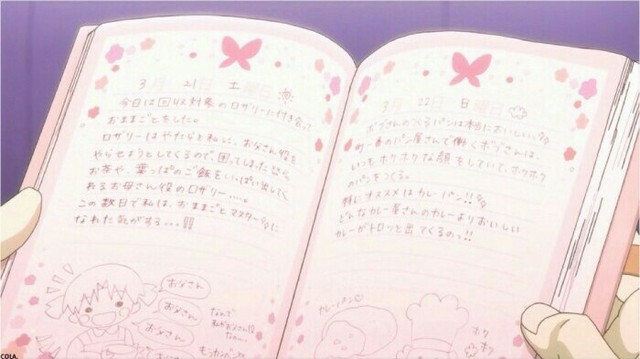 3月 21日 土曜日
今日は回収対象のロザリーに付き合って
おままごとをした。
ロザリーはやたらと私に、おなさん役を
やらせようとしてくるので、困ってしまったぜ。
お茶や、葉っぱのご飯をいっぱい出してく
れるお母さん役のロザリー…。
この数日で私は、おままごとマスターに
なれた気がする…!!
おなさん
おなさん
おなさん
なんで
3月 22日 日曜日
ボブさんのつくるパンは格におい​しい。
町一番のパン屋さんで働くボブさんは、
いつもホクホクな顔をしていて、ホクホク
のパンをつくる。
特にオススメはカレーパン!!
どんなカレー屋さんのカレーよりおいしい
カレーがトロッと出てくるのっ!!
カレーパン
ホク
ホク
COLA.